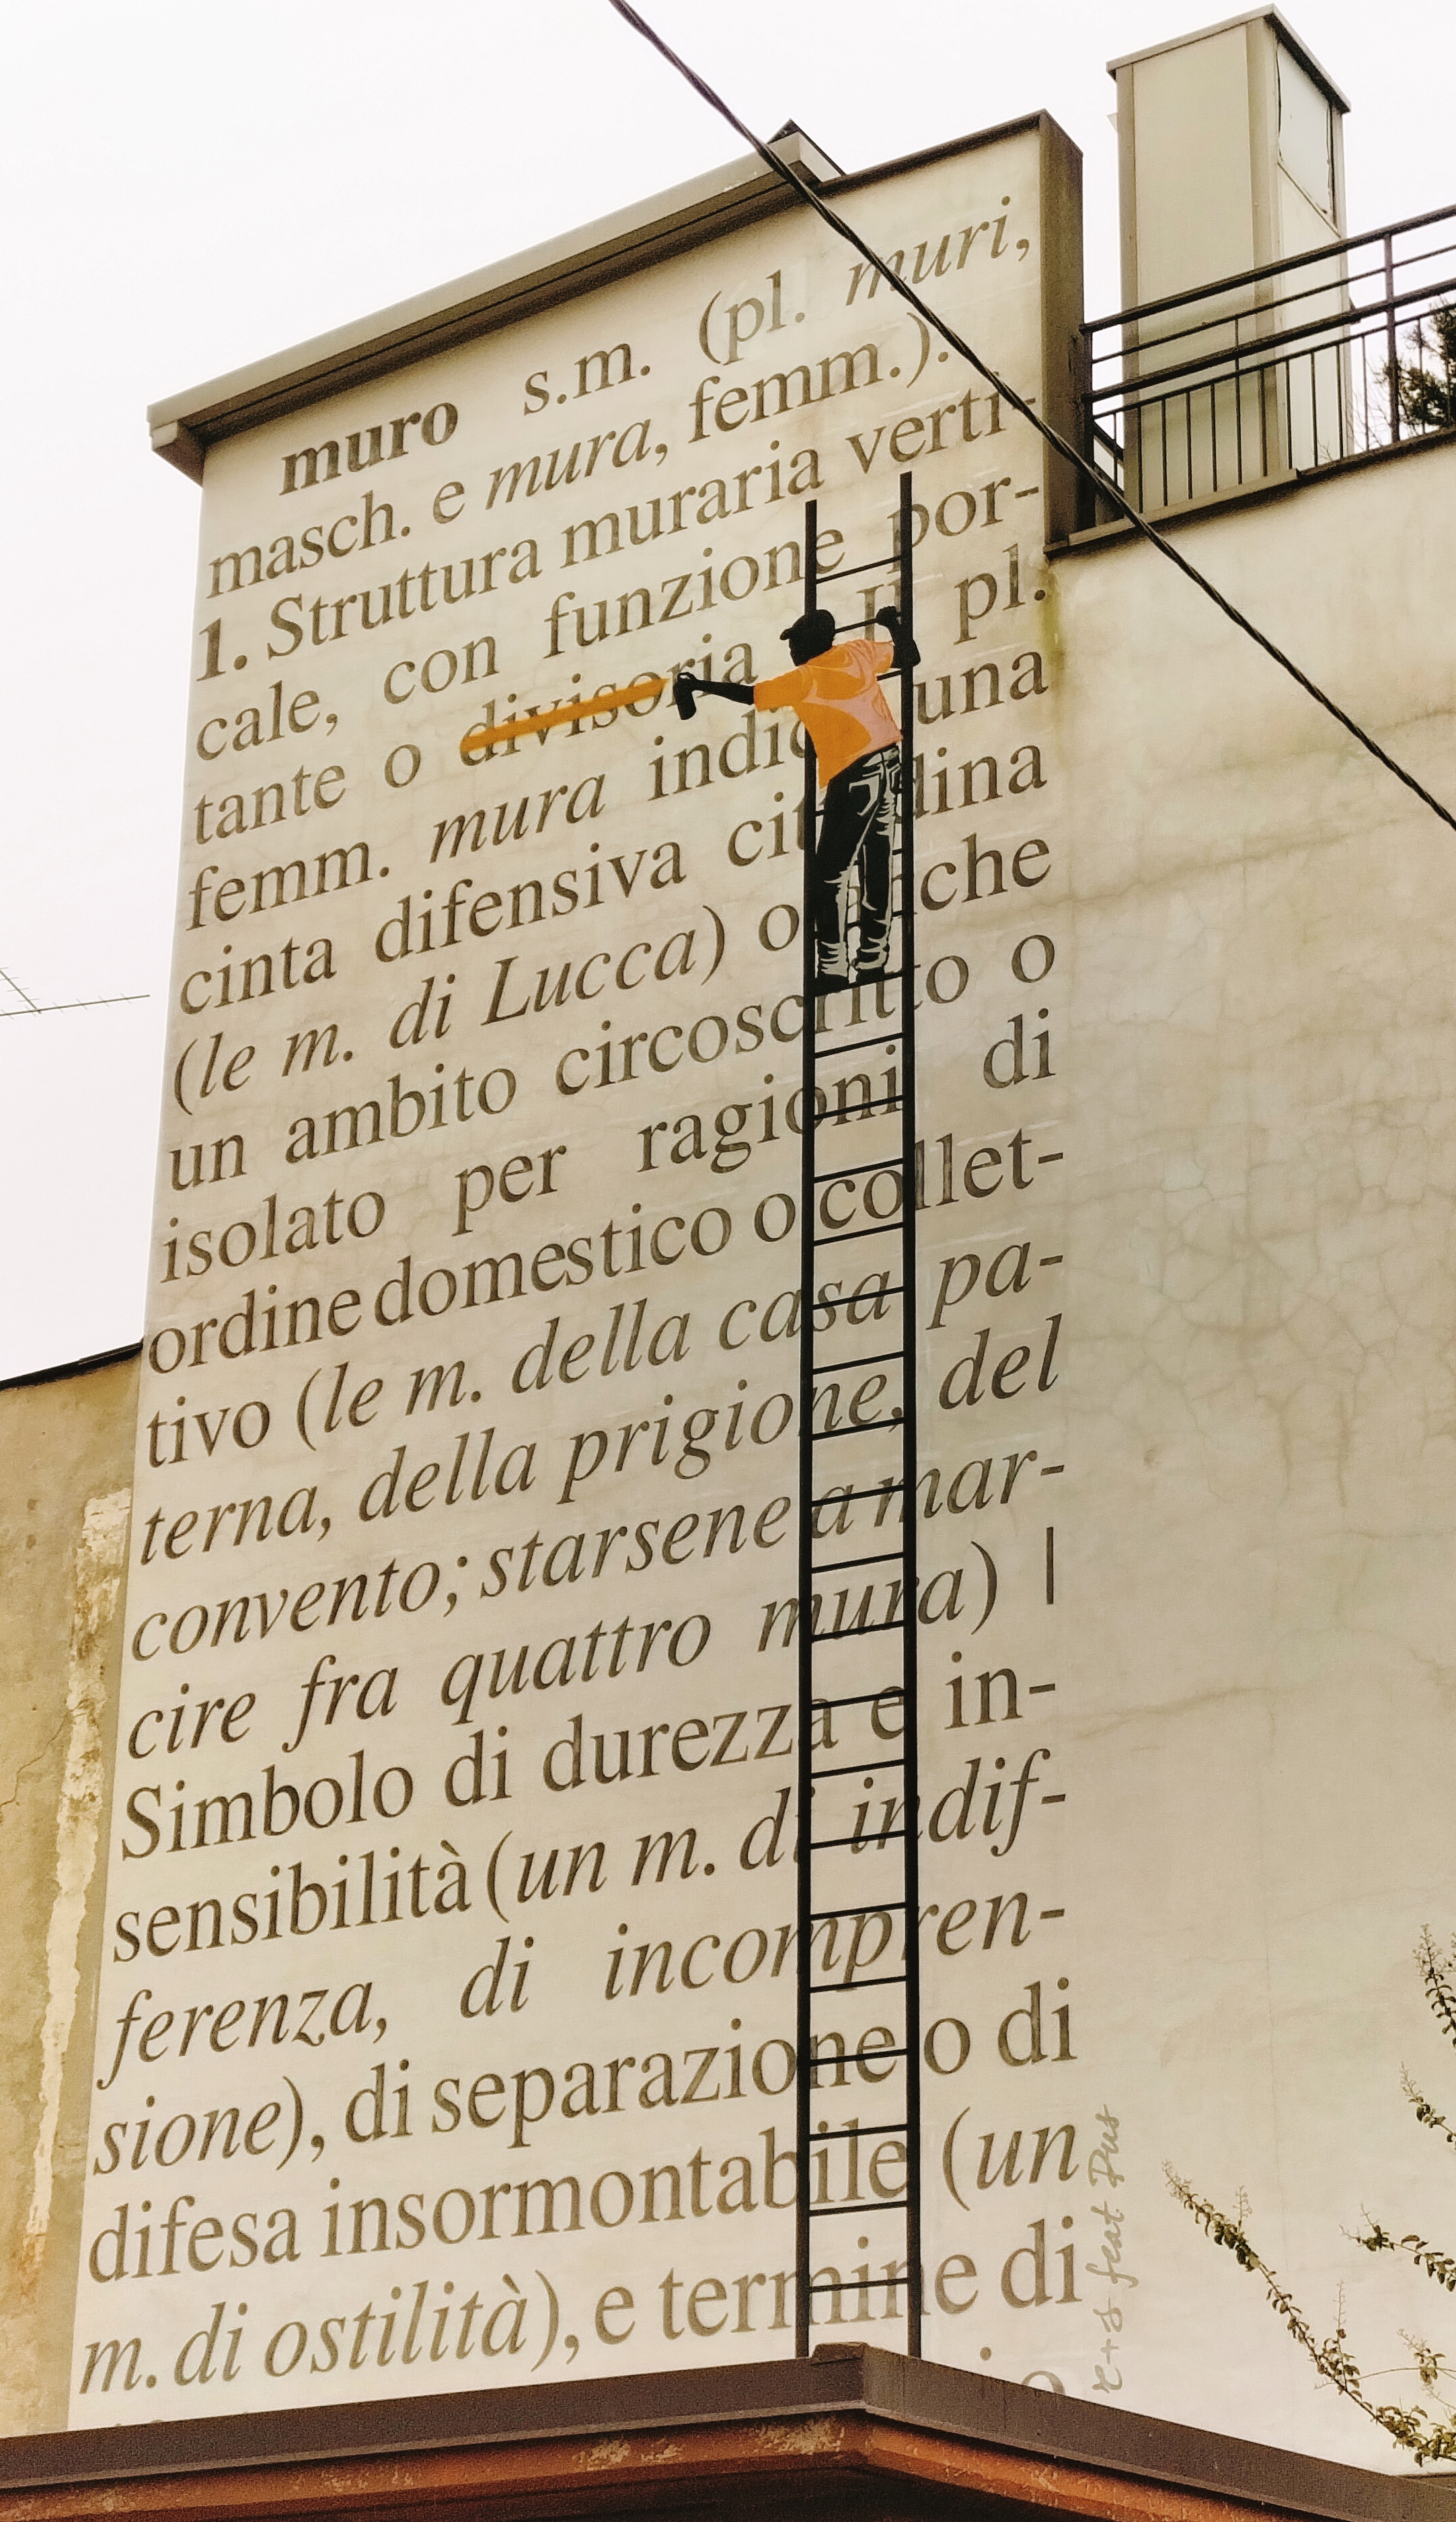 muro s.m. (pl. muri,
masch. e mura, femm.).
1. Struttura muraria verti-
cale, con funzione por-
tante o divisoria. Il pl.
femm. mura indica una
cinta difensiva cittadina
(le m. di Lucca) o anche
un ambito circoscritto o
isolato per ragioni di
ordine domestico o collet-
tivo (le m. della casa pa-
terna, della prigione, del
convento; starsene a mar-
cire fra quattro mura) |
Simbolo di durezza e in-
sensibilità (un m. di indif-
ferenza, di incompren-
sione), di separazione o di
difesa insormontabile (un
m. di ostilità), e termine di
feat Dus